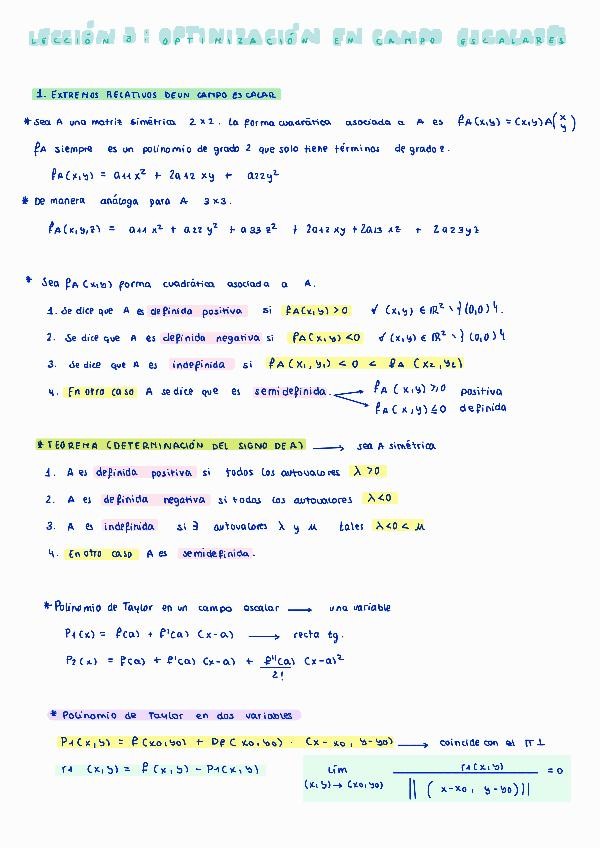 LECCIÓN 3: OPTIMIZACIÓN EN CAMPO ESCALARES
1. EXTREMOS RELATIVOS DE UN CAMPO ESCALAR
* Sea A una matriz simétrica 2x2. La forma cuadrática asociada a A es fA(x,y) = (x,y)A(x y)
fA siempre es un polinomio de grado 2 que solo tiene términos de grado 2.
fA(x,y) = a11x² + 2a12xy + a22y²
* De manera análoga para A 3x3.
fA(x,y,z) = a11x² + a22y² + a33z² + 2a12xy + 2a13xz + 2a23yz
* Sea fA(x,y) forma cuadrática asociada a A.
1. Se dice que A es definida positiva si fA(x,y) > 0 ∀(x,y) ∈ ℝ² \ {(0,0)}.
2. Se dice que A es definida negativa si fA(x,y) < 0 ∀(x,y) ∈ ℝ² \ {(0,0)}
3. Se dice que A es indefinida si fA(x1,y1) < 0 < fA(x2,y2)
4. En otro caso A se dice que es semidefinida. → fA(x,y) ≥ 0 positiva
→ fA(x,y) ≤ 0 definida
* TEOREMA (DETERMINACIÓN DEL SIGNO DE A) → sea A simétrica
1. A es definida positiva si todos los autovalores λ > 0
2. A es definida negativa si todos los autovalores λ < 0
3. A es indefinida si ∃ autovalores λ y μ tales λ < 0 < μ
4. En otro caso A es semidefinida.
* Polinomio de Taylor en un campo escalar → una variable
P1(x) = f(a) + f'(a) (x-a) → recta tg.
P2(x) = f(a) + f'(a) (x-a) + f''(a)/2! (x-a)²
* Polinomio de Taylor en dos variables
P1(x,y) = f(x0,y0) + Df(x0,y0) · (x-x0, y-y0) → coincide con el PT1
r1 (x,y) = f(x,y) - P1(x,y)
lim (x,y)→(x0,y0) r1(x,y) / ||(x-x0, y-y0)|| = 0